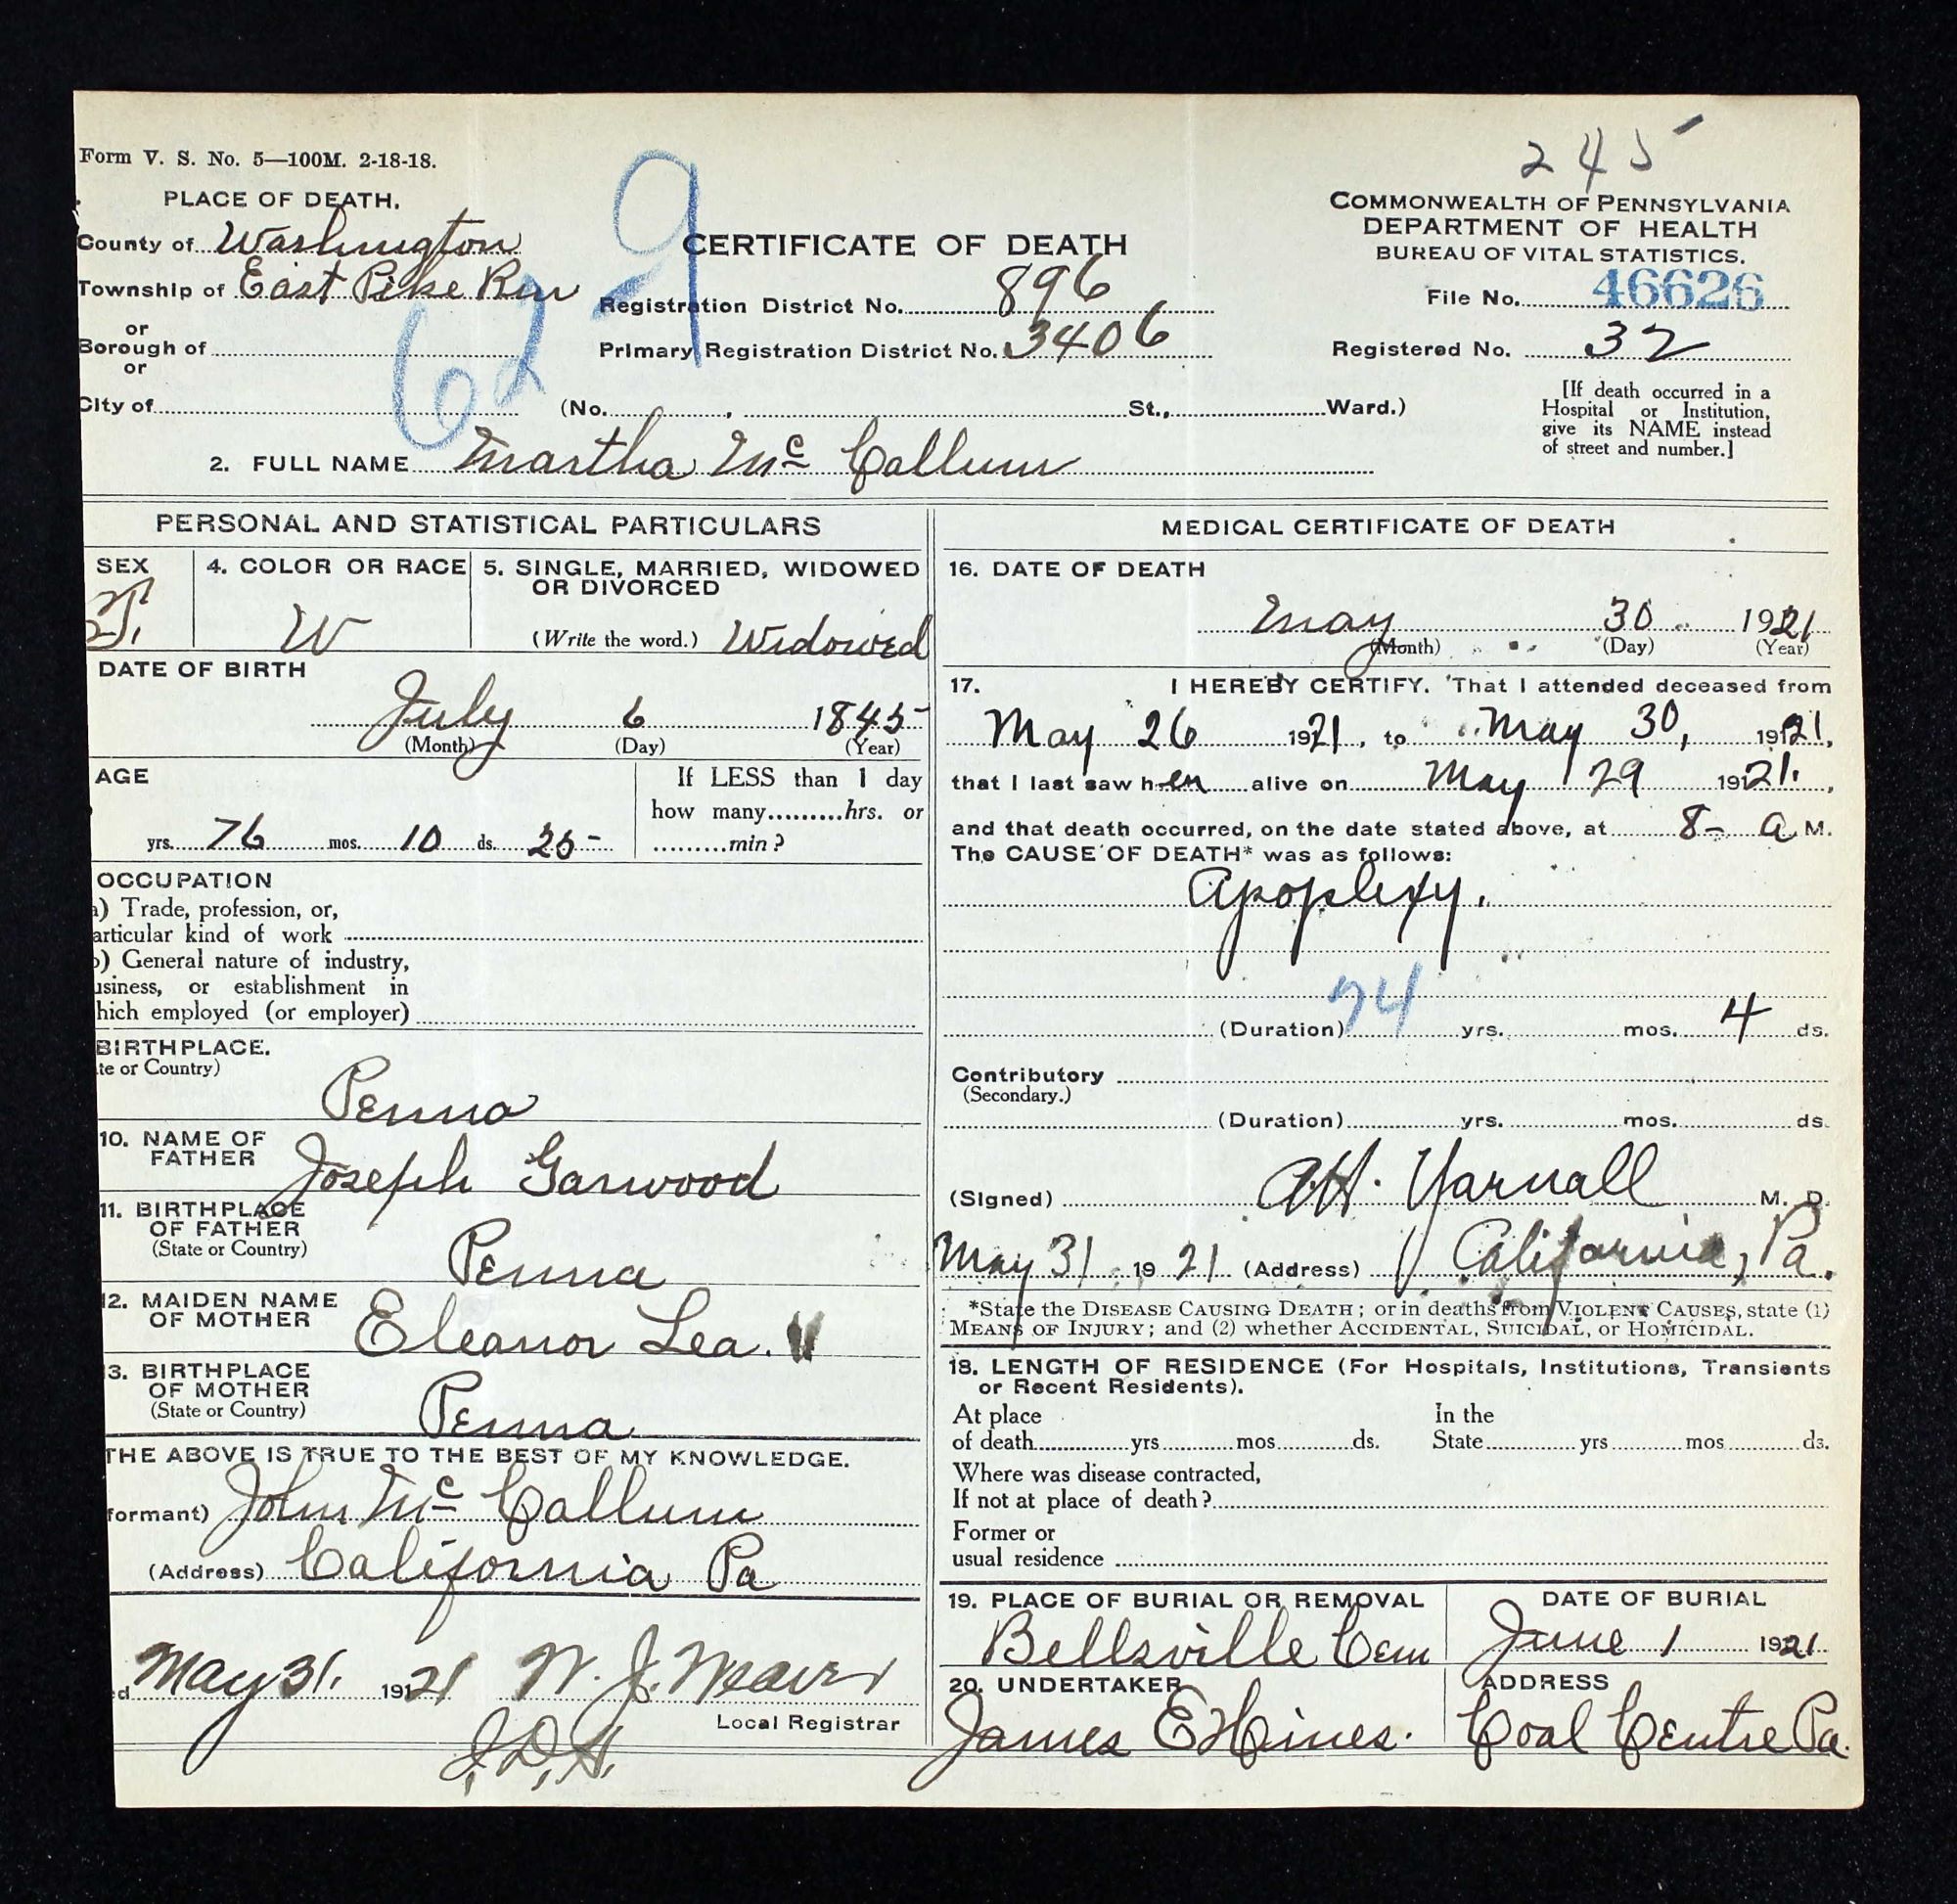 245
Form V. S. No. 5—100M. 2-18-18.
PLACE OF DEATH.
County of Washington
Township of East Pike Run
or
Borough of
or
City of
629
CERTIFICATE OF DEATH
Registration District No. 896
Primary Registration District No. 3406
(No. , St., Ward.)
COMMONWEALTH OF PENNSYLVANIA
DEPARTMENT OF HEALTH
BUREAU OF VITAL STATISTICS.
File No. 46626
Registered No. 32
[If death occurred in a
Hospital or Institution,
give its NAME instead
of street and number.]
2. FULL NAME Martha Mc Callum
PERSONAL AND STATISTICAL PARTICULARS
SEX
F.
4. COLOR OR RACE
W
5. SINGLE, MARRIED, WIDOWED
OR DIVORCED
(Write the word.) Widowed
DATE OF BIRTH
July 6 1845
(Month) (Day) (Year)
AGE
yrs. 76 mos. 10 ds. 25
If LESS than 1 day
how many.........hrs. or
.........min?
OCCUPATION
a) Trade, profession, or,
articular kind of work
b) General nature of industry,
usiness, or establishment in
hich employed (or employer)
BIRTHPLACE.
te or Country)
Penna
10. NAME OF
FATHER
Joseph Garwood
11. BIRTHPLACE
OF FATHER
(State or Country)
Penna
12. MAIDEN NAME
OF MOTHER
Eleanor Lea.
13. BIRTHPLACE
OF MOTHER
(State or Country)
Penna
THE ABOVE IS TRUE TO THE BEST OF MY KNOWLEDGE.
formant) John Mc Callum
(Address) California Pa
d May 31. 1921 W. J. Weaver
Local Registrar
J.D.H.
MEDICAL CERTIFICATE OF DEATH
16. DATE OF DEATH
May 30 1921
(Month) (Day) (Year)
17. I HEREBY CERTIFY. That I attended deceased from
May 26 1921, to May 30, 1921,
that I last saw her alive on May 29 1921.,
and that death occurred, on the date stated above, at 8- a M.
The CAUSE OF DEATH* was as follows:
Apoplexy.
74
(Duration) yrs. mos. 4 ds.
Contributory
(Secondary.)
(Duration) yrs. mos. ds.
(Signed) A.H. Yarnall M. D.
May 31 1921 (Address) California, Pa.
*State the DISEASE CAUSING DEATH; or in deaths from VIOLENT CAUSES, state (1)
MEANS OF INJURY; and (2) whether ACCIDENTAL, SUICIDAL, or HOMICIDAL.
18. LENGTH OF RESIDENCE (For Hospitals, Institutions, Transients
or Recent Residents).
At place
of death yrs mos ds.
In the
State yrs mos ds.
Where was disease contracted,
If not at place of death?
Former or
usual residence
19. PLACE OF BURIAL OR REMOVAL
Bellsville Cem
DATE OF BURIAL
June 1 1921
20. UNDERTAKER
James E Hines.
ADDRESS
Coal Centre Pa.